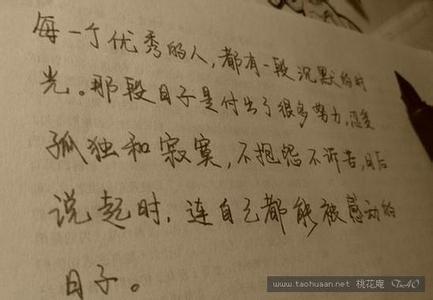 每一个优秀的人,都有一段沉默的时
光。那段日子是付出了很多努力,忍受
孤独和寂寞,不抱怨不诉苦,日后
说起时,连自己都能被感动的
日子。
www.taohuaan.net 桃花庵 TxAO